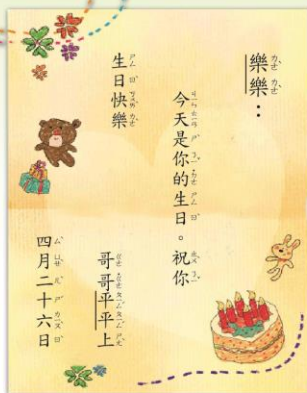 樂樂：
今天是你的生日。祝你
生日快樂
哥哥平平上
四月二十六日